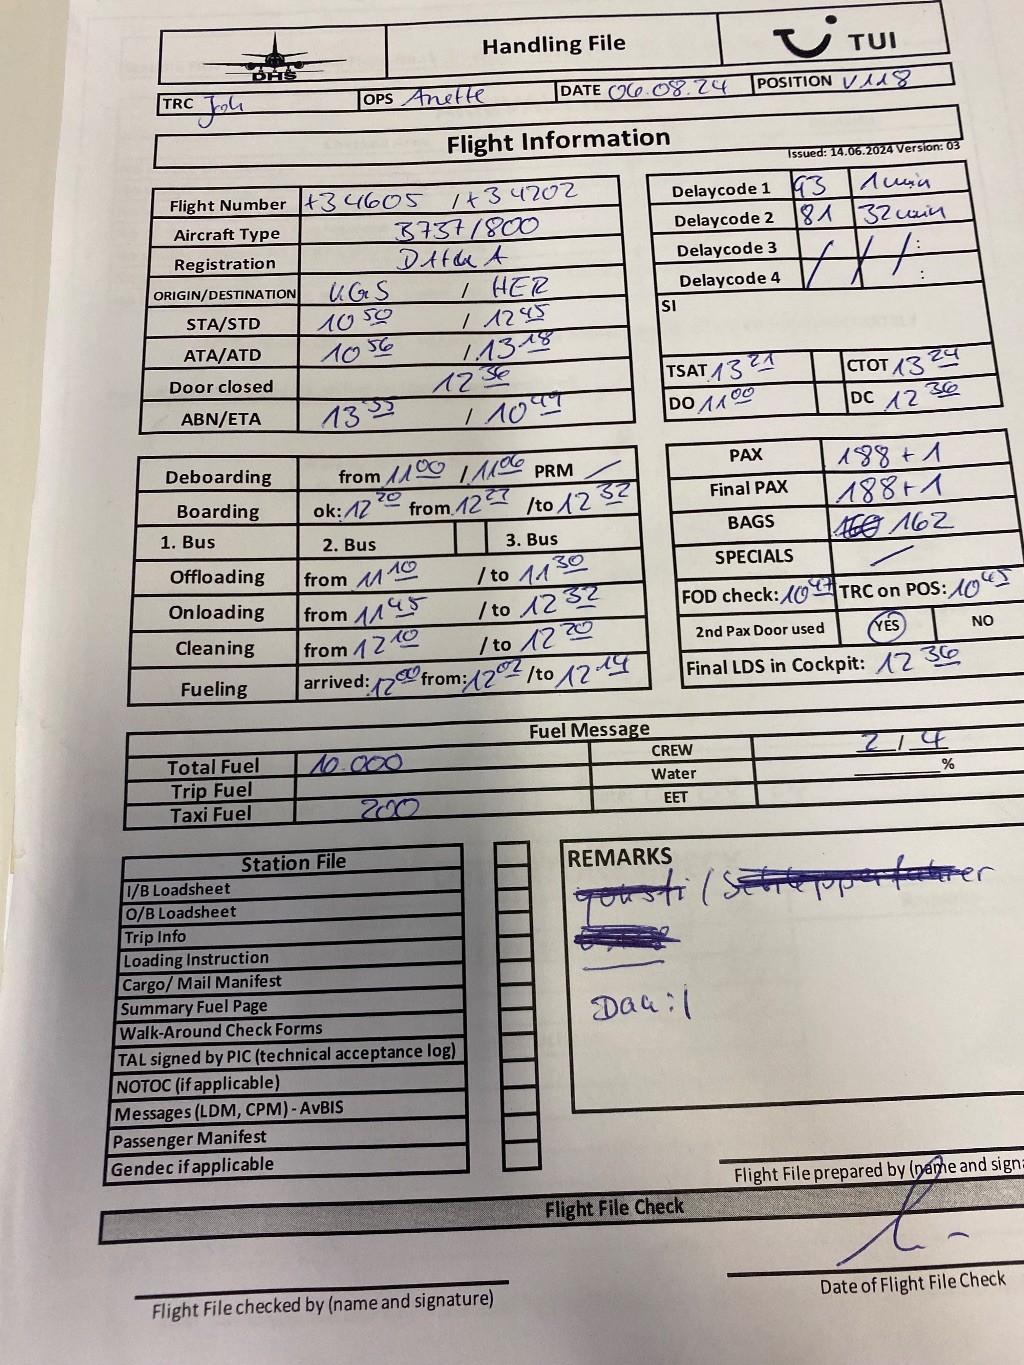 DHS
Handling File
TUI
TRC Joh OPS Anette DATE 06.08.24 POSITION V118
Flight Information
Issued: 14.06.2024 Version: 03
Flight Number X3 4605 / X3 4202
Aircraft Type B737/800
Registration
ORIGIN/DESTINATION KGS / HER
STA/STD 10 50 / 12 45
ATA/ATD 10 56 / 13 18
Door closed 12 36
ABN/ETA 13 55 / 10 49
Delaycode 1 93 1min
Delaycode 2 81 32min
Delaycode 3 / / / :
Delaycode 4 :
SI
TSAT 13 21 CTOT 13 24
DO 11 00 DC 12 36
Deboarding from 11 00 / 11 06 PRM /
Boarding ok: 12 20 from 12 27 /to 12 32
1. Bus 2. Bus 3. Bus
Offloading from 11 10 / to 11 30
Onloading from 11 45 / to 12 32
Cleaning from 12 10 / to 12 20
Fueling arrived: 12 00 from: 12 02 /to 12 14
PAX 188 + 1
Final PAX 188 + 1
BAGS 160 162
SPECIALS /
FOD check: 10 47 TRC on POS: 10 45
2nd Pax Door used YES NO
Final LDS in Cockpit: 12 36
Fuel Message
Total Fuel 10.000 CREW 2 / 4
Trip Fuel Water %
Taxi Fuel 200 EET
Station File
I/B Loadsheet
O/B Loadsheet
Trip Info
Loading Instruction
Cargo/ Mail Manifest
Summary Fuel Page
Walk-Around Check Forms
TAL signed by PIC (technical acceptance log)
NOTOC (if applicable)
Messages (LDM, CPM) - AvBIS
Passenger Manifest
Gendec if applicable
REMARKS
Flight File prepared by (name and signa
Flight File Check
Flight File checked by (name and signature)
Date of Flight File Check